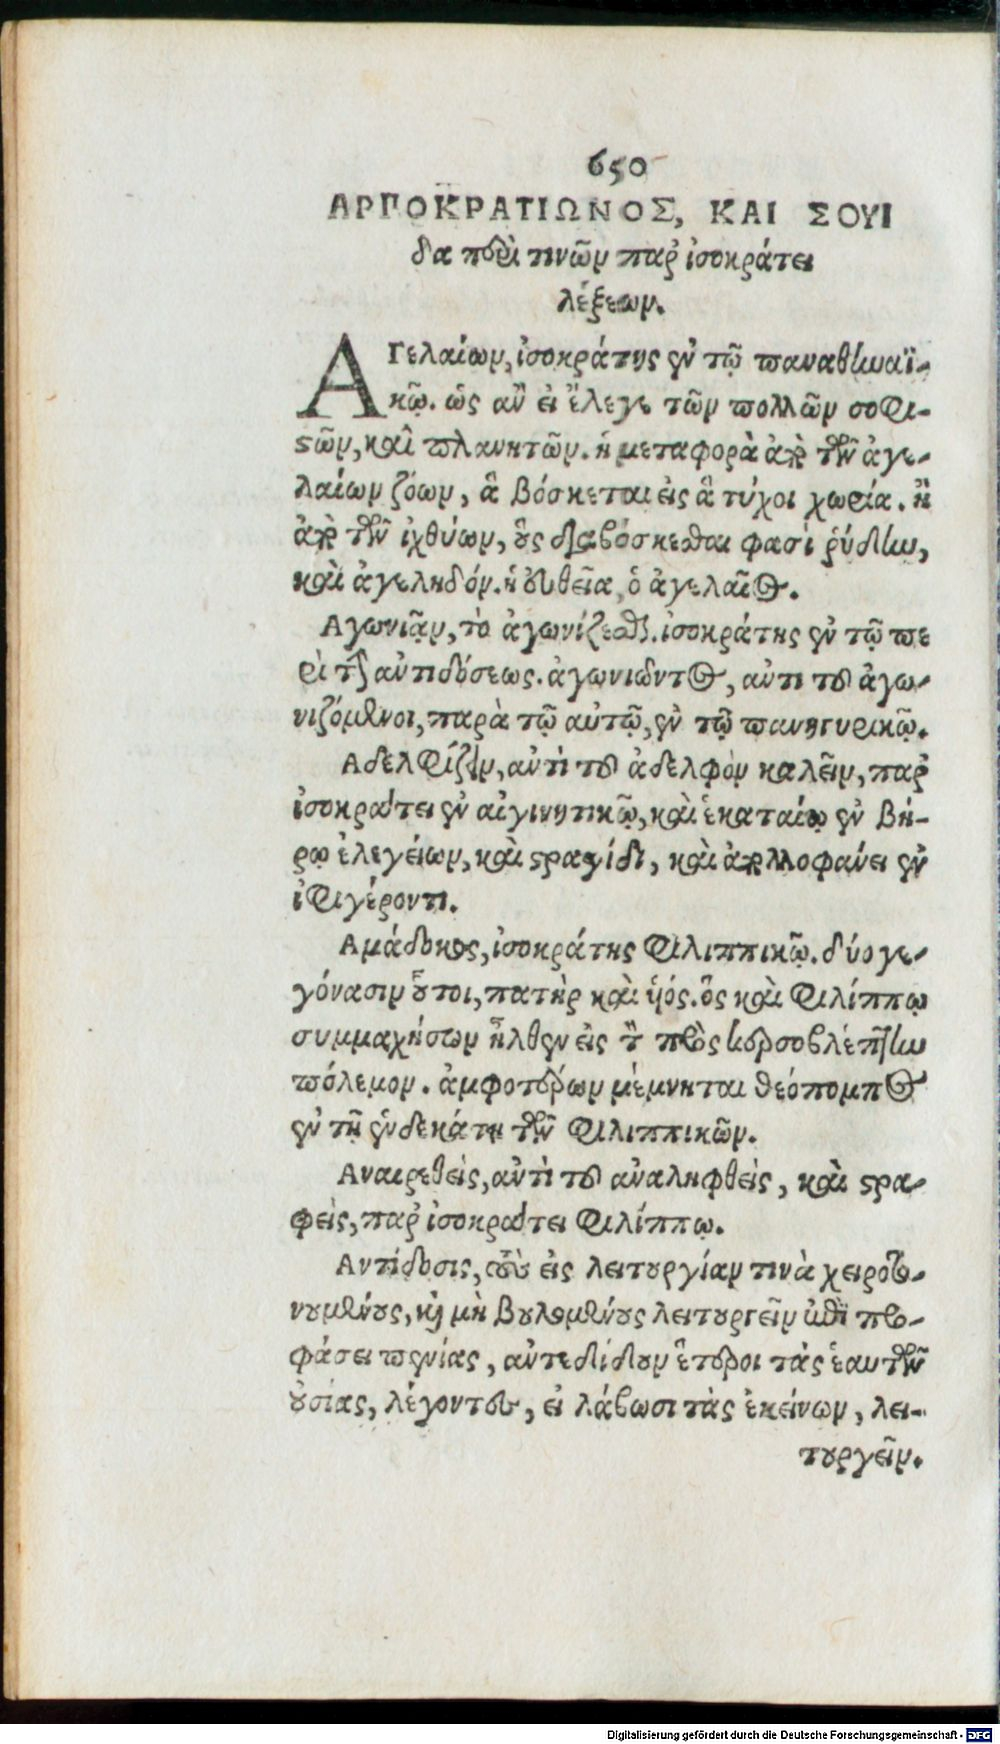 650
ΑΡΠΟΚΡΑΤΙΩΝΟΣ, ΚΑΙ ΣΟΥΙ
δα περὶ τινῶν παρ' ἰσοκράτει
λέξεων.
ΑΓελαίων, ἰσοκράτης ἐν τῷ παναθηναϊ-
κῷ. ὡς ἂν εἰ ἔλεγε τῶν πολλῶν σοφι-
ςῶν, καὶ πλανητῶν. ἡ μεταφορὰ ἀπὸ τῶν ἀγε-
λαίων ζώων, ἃ βόσκεται εἰς ἃ τύχοι χωρία. ἢ
ἀπὸ τῶν ἰχθύων, οὓς διαβόσκεσθαι φασὶ ῥύδην,
καὶ ἀγεληδόν. ἡ εὐθεῖα, ὁ ἀγελαῖος.
Αγωνιᾷν, τὸ ἀγωνίζεσθαι. ἰσοκράτης ἐν τῷ πε
ρὶ τῆς ἀντιδόσεως. ἀγωνιῶντος, ἀντὶ τοῦ ἀγω-
νιζόμενοι, παρὰ τῷ αὐτῷ, ἐν τῷ πανηγυρικῷ.
Αδελφίζειν, ἀντὶ τοῦ ἀδελφὸν καλεῖν, παρ'
ἰσοκράτει ἐν αἰγινητικῷ, καὶ ἑκαταίῳ ἐν βή-
ρῳ ἐλεγείων, καὶ ςραγίδι, καὶ ἀπολλοφάνει ἐν
ἰφιγέροντι.
Αμάδοκος, ἰσοκράτης φιλιππικῷ. δύο γε-
γόνασιν οὗτοι, πατὴρ καὶ υἱός. ὃς καὶ φιλίππῳ
συμμαχήσων ἦλθεν εἰς τὸν πρὸς κερσοβλέπτην
πόλεμον. ἀμφοτέρων μέμνηται θεόπομπος
ἐν τῇ ἑνδεκάτῃ τῶν φιλιππικῶν.
Αναιρεθείς, ἀντὶ τοῦ ἀναληφθείς, καὶ ςρα-
φείς, παρ' ἰσοκράτει φιλίππῳ.
Αντίδοσις, τοὺς εἰς λειτουργίαν τινὰ χειροτο-
νουμένους, καὶ μὴ βουλομένους λειτουργεῖν ἐπὶ προ-
φάσει πενίας, ἀντεδίδουν ἕτεροι τὰς ἑαυτῶν
οὐσίας, λέγοντες, εἰ λάβωσι τὰς ἐκείνων, λει-
τουργεῖν.
Digitalisierung gefördert durch die Deutsche Forschungsgemeinschaft - DFG